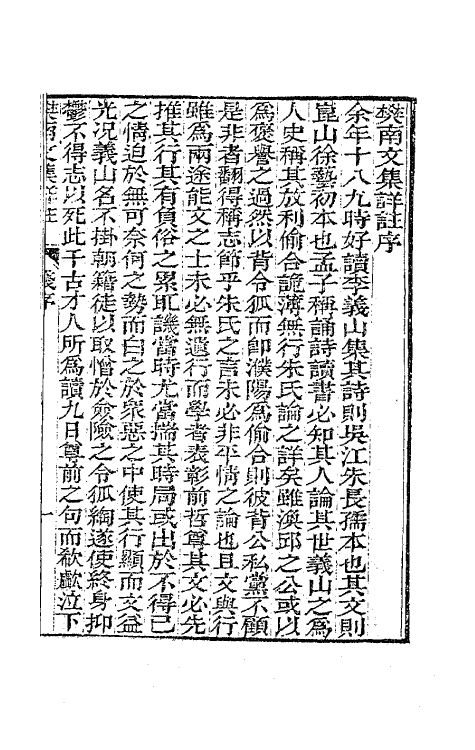 樊南文集詳註序
余年十八九時好讀李義山集其詩則吳江朱長孺本也其文則
崑山徐藝初本也孟子稱誦詩讀書必知其人論其世義山之為
人史稱其放利偷合詭薄無行朱氏論之詳矣雖漢邱之公或以
為褒譽之過然以背令狐而卽濮陽為偷合則彼背公私黨不顧
是非者翻得稱志節乎朱氏之言未必非平情之論也且文與行
雖為兩途能文之士未必無遺行而學者表彰前哲尊其文必先
推其行其有負俗之累取譏當時尤當揣其時局或出於不得已
之情迫於無可奈何之勢而白之於眾惡之中使其行顯而文益
光况義山名不掛朝籍徒以取憎於僉險之令狐綯遂使終身抑
鬱不得志以死此千古才人所為讀九日尊前之句而欷歔泣下
樊南文集詳註
序
一